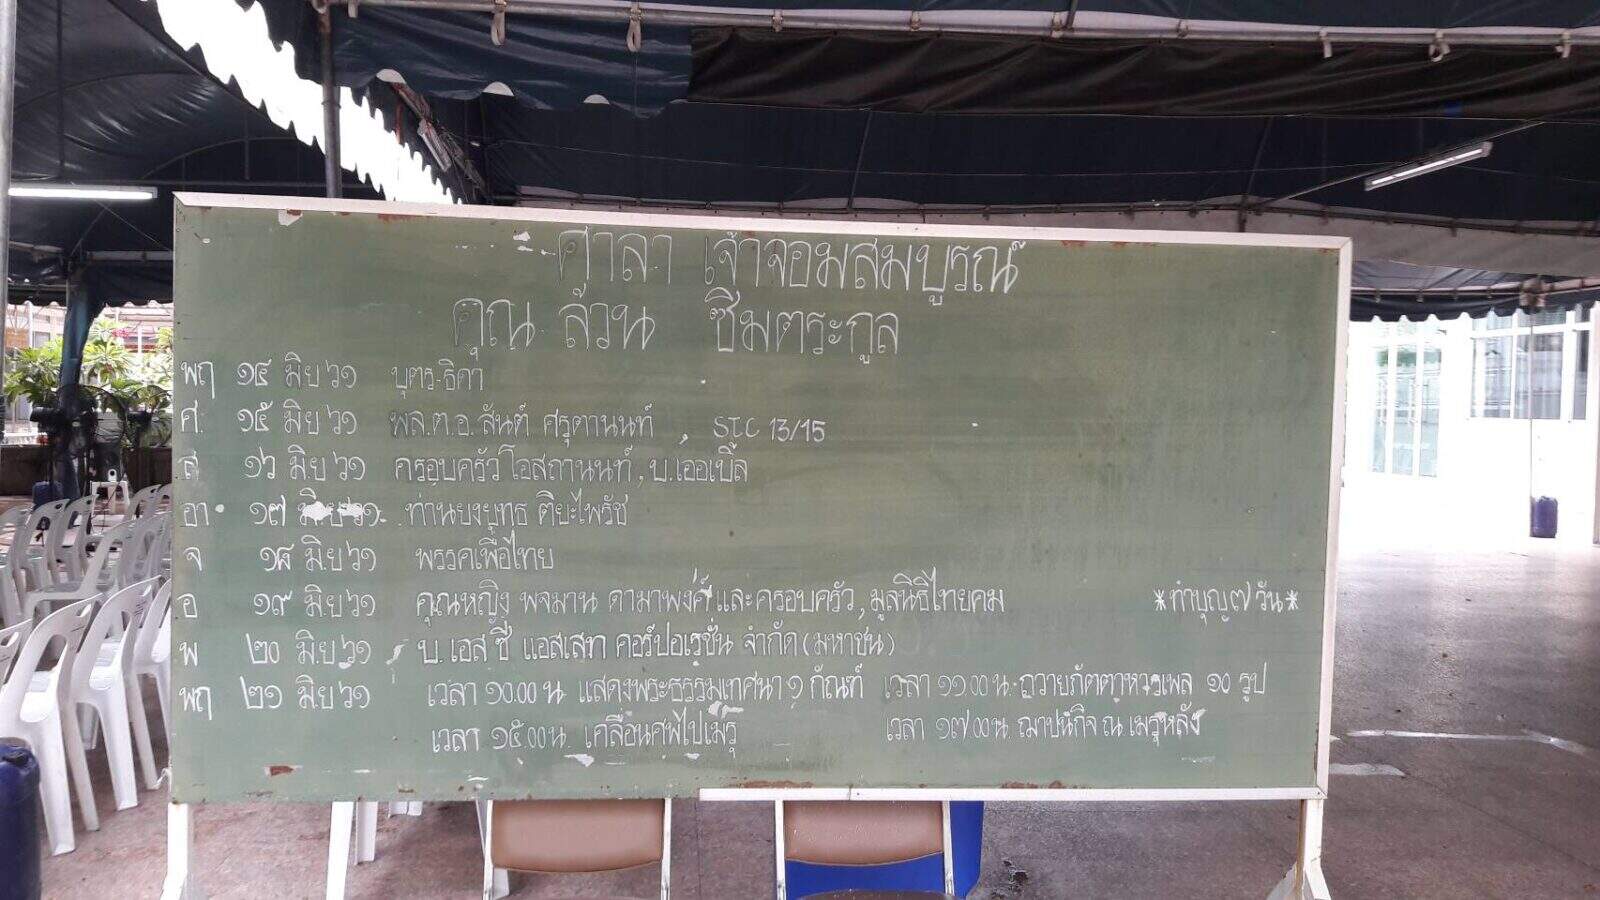 ศาลา เจ้าจอมสมบูรณ์
คุณ ล้วน ชีมตระกูล
พฤ ๑๔ มิย ๖๑ บุตร-ธิดา
ศ. ๑๕ มิย ๖๑ พล.ต.อ. สันต์ ศรุตานนท์ , STC 13/15
ส ๑๖ มิย ๖๑ ครอบครัวโอสถานนท์, บ.เออเบิ้ล
อา ๑๗ มิย ๖๑ ท่านยงยุทธ ติยะไพรัช
จ ๑๘ มิ.ย ๖๑ พรรคเพื่อไทย
อ ๑๙ มิย ๖๑ คุณหญิง พจมาน ดามาพงศ์ และครอบครัว, มูลนิธิไทยคม *ทำบุญ๗ วัน*
พ ๒๐ มิ.ย ๖๑ บ. เอส ซี แอสเสท คอร์ปอเรชั่น จำกัด(มหาชน)
พฤ ๒๑ มิย ๖๑ เวลา ๑๐.๐๐ น. แสดงพระธรรมเทศนา ๑ กัณฑ์ เวลา ๑๑๐๐ น. ถวายภัตตาหารเพล ๑๐ รูป
เวลา ๑๕.๐๐ น. เคลื่อนศพไปเมรุ เวลา ๑๗๐๐ น. ฌาปนกิจ ณ เมรุหลัง